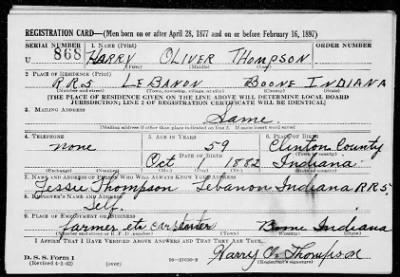 REGISTRATION CARD—(Men born on or after April 28, 1877 and on or before February 16, 1897)
SERIAL NUMBER 1. NAME (Print) ORDER NUMBER
U 868 HARRY OLIVER THOMPSON
2. PLACE OF RESIDENCE (Print)
RR5 LEBANON BOONE INDIANA
[THE PLACE OF RESIDENCE GIVEN ON THE LINE ABOVE WILL DETERMINE LOCAL BOARD
JURISDICTION; LINE 2 OF REGISTRATION CERTIFICATE WILL BE IDENTICAL]
3. MAILING ADDRESS
Same
4. TELEPHONE 5. AGE IN YEARS 6. PLACE OF BIRTH
none 59 Clinton County
DATE OF BIRTH
Oct 1 1882 Indiana
7. NAME AND ADDRESS OF PERSON WHO WILL ALWAYS KNOW YOUR ADDRESS
Jessie Thompson Lebanon Indiana R.R.5.
8. EMPLOYER'S NAME AND ADDRESS
Self.
9. PLACE OF EMPLOYMENT OR BUSINESS
farmer Boone Indiana
I AFFIRM THAT I HAVE VERIFIED ABOVE ANSWERS AND THAT THEY ARE TRUE.
D. S. S. Form 1 Harry O. Thompson
(Revised 4-1-42) (over)